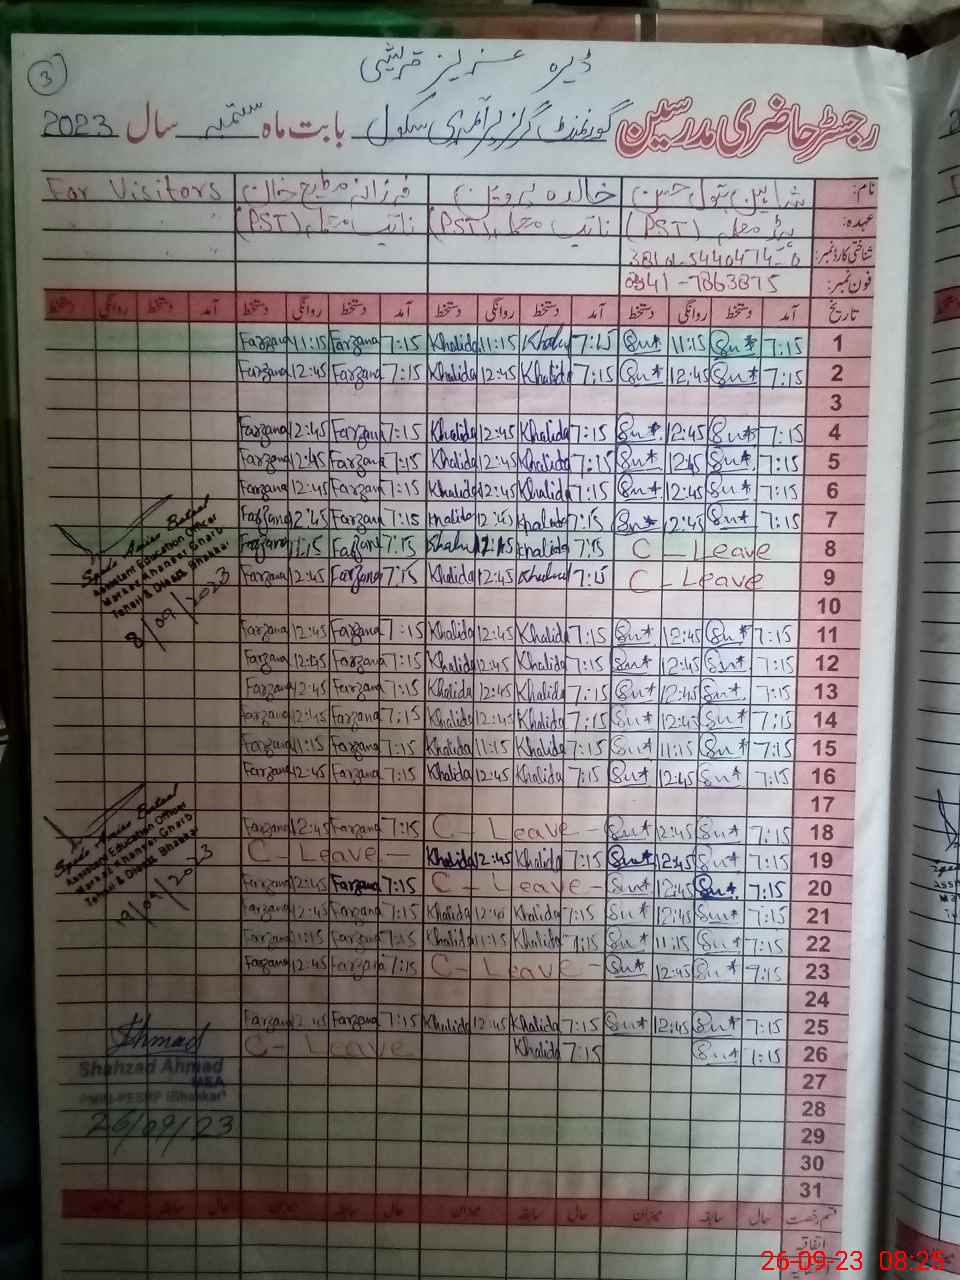 3
ڈیرہ عزیز قریشی
رجسٹر حاضری مدرسین گورنمنٹ گرلز پرائمری سکول بابت ماہ ستمبر سال 2023
نام: شاہین بتول حسن خالدہ پروین فرزانہ مطیع خان For Visitors
عہدہ: ہیڈ معلمہ (PST) نائب معلمہ (PST) نائب معلمہ (PST)
شناختی کارڈ نمبر:
فون نمبر: 0341-7863875
تاریخ آمد دستخط روانگی دستخط آمد دستخط روانگی دستخط آمد دستخط روانگی دستخط آمد دستخط روانگی دستخط
Farzana 11:15 Farzana 7:15 Khalida 11:15 7:15 Su* 11:15 Su* 7:15 1
Farzana 12:45 Farzana 7:15 Khalida 12:45 Khalida 7:15 Su* 12:45 Su* 7:15 2
3
Farzana 12:45 Farzana 7:15 Khalida 12:45 Khalida 7:15 Su* 12:45 Su* 7:15 4
Farzana 12:45 Farzana 7:15 Khalida 12:45 Khalida 7:15 Su* 12:45 Su* 7:15 5
Farzana 12:45 Farzana 7:15 Khalida 12:45 Khalida 7:15 Su* 12:45 Su* 7:15 6
Farzana 12:45 Farzana 7:15 Khalida 12:45 Khalida 7:15 Su* 12:45 Su* 7:15 7
Farzana 11:15 Farzana 7:15 Khalida 7:15 C - Leave 8
Farzana 12:45 Farzana 7:15 Khalida 12:45 Khalida 7:15 C - Leave 9
Assistant Education Officer
Markaz Khanpar Gharb
Tehsil & Distt: Bhakkar
8/09/2023
10
Farzana 12:45 Farzana 7:15 Khalida 12:45 Khalida 7:15 Su* 12:45 Su* 7:15 11
Farzana 12:45 Farzana 7:15 Khalida 12:45 Khalida 7:15 Su* 12:45 Su* 7:15 12
Farzana 12:45 Farzana 7:15 Khalida 12:45 Khalida 7:15 Su* 12:45 Su* 7:15 13
Farzana 12:45 Farzana 7:15 Khalida 12:45 Khalida 7:15 Su* 12:45 Su* 7:15 14
Farzana 11:15 Farzana 7:15 Khalida 11:15 Khalida 7:15 Su* 11:15 Su* 7:15 15
Farzana 12:45 Farzana 7:15 Khalida 12:45 Khalida 7:15 Su* 12:45 Su* 7:15 16
17
Farzana 12:45 Farzana 7:15 C - Leave - Su* 12:45 Su* 7:15 18
C - Leave - Khalida 12:45 Khalida 7:15 Su* 12:45 Su* 7:15 19
Farzana 12:45 Farzana 7:15 C - Leave - Su* 12:45 Su* 7:15 20
Assistant Education Officer
Markaz Khanpar Gharb
Tehsil & Distt: Bhakkar
19/09/2023
Farzana 12:45 Farzana 7:15 Khalida 12:45 Khalida 7:15 Su* 12:45 Su* 7:15 21
Farzana 11:15 Farzana 7:15 Khalida 11:15 Khalida 7:15 Su* 11:15 Su* 7:15 22
Farzana 12:45 Farzana 7:15 C - Leave - Su* 12:45 Su* 7:15 23
24
Farzana 12:45 Farzana 7:15 Khalida 12:45 Khalida 7:15 Su* 12:45 Su* 7:15 25
C - Leave Khalida 7:15 Su* 7:15 26
Ahmad
Shahzad Ahmad
MEA
26/09/23
27
28
29
30
31
قسم رخصت حال سابقہ میزان حال سابقہ میزان حال سابقہ میزان حال سابقہ میزان
اتفاقیہ
26-09-23 08:25